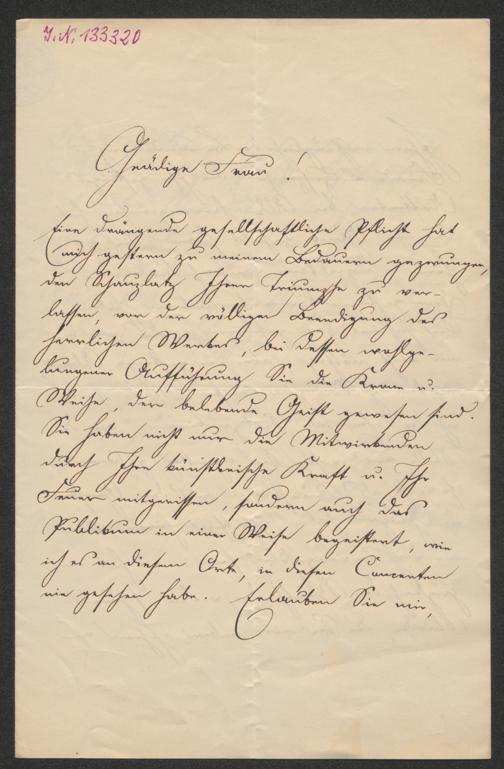 J. N. 133320
Gnädige Frau!
Eine drängende gesellschaftliche Pflicht hat
mich gestern zu meinem Bedauern gezwungen,
den Schauplatz Ihrer Triumphe zu ver-
lassen, vor der völligen Beendigung des
herrlichen Werkes, bei dessen wohlge-
lungener Aufführung Sie die Krone u.
Weihe, der belebende Geist gewesen sind.
Sie haben nicht nur die Mitwirkenden
durch Ihre künstlerische Kraft u. Ihr
Feuer mitgerissen, sondern auch das
Publikum in einer Weise begeistert, wie
ich es an diesem Orte, in diesen Concerten
nie gesehen habe. Erlauben Sie mir,